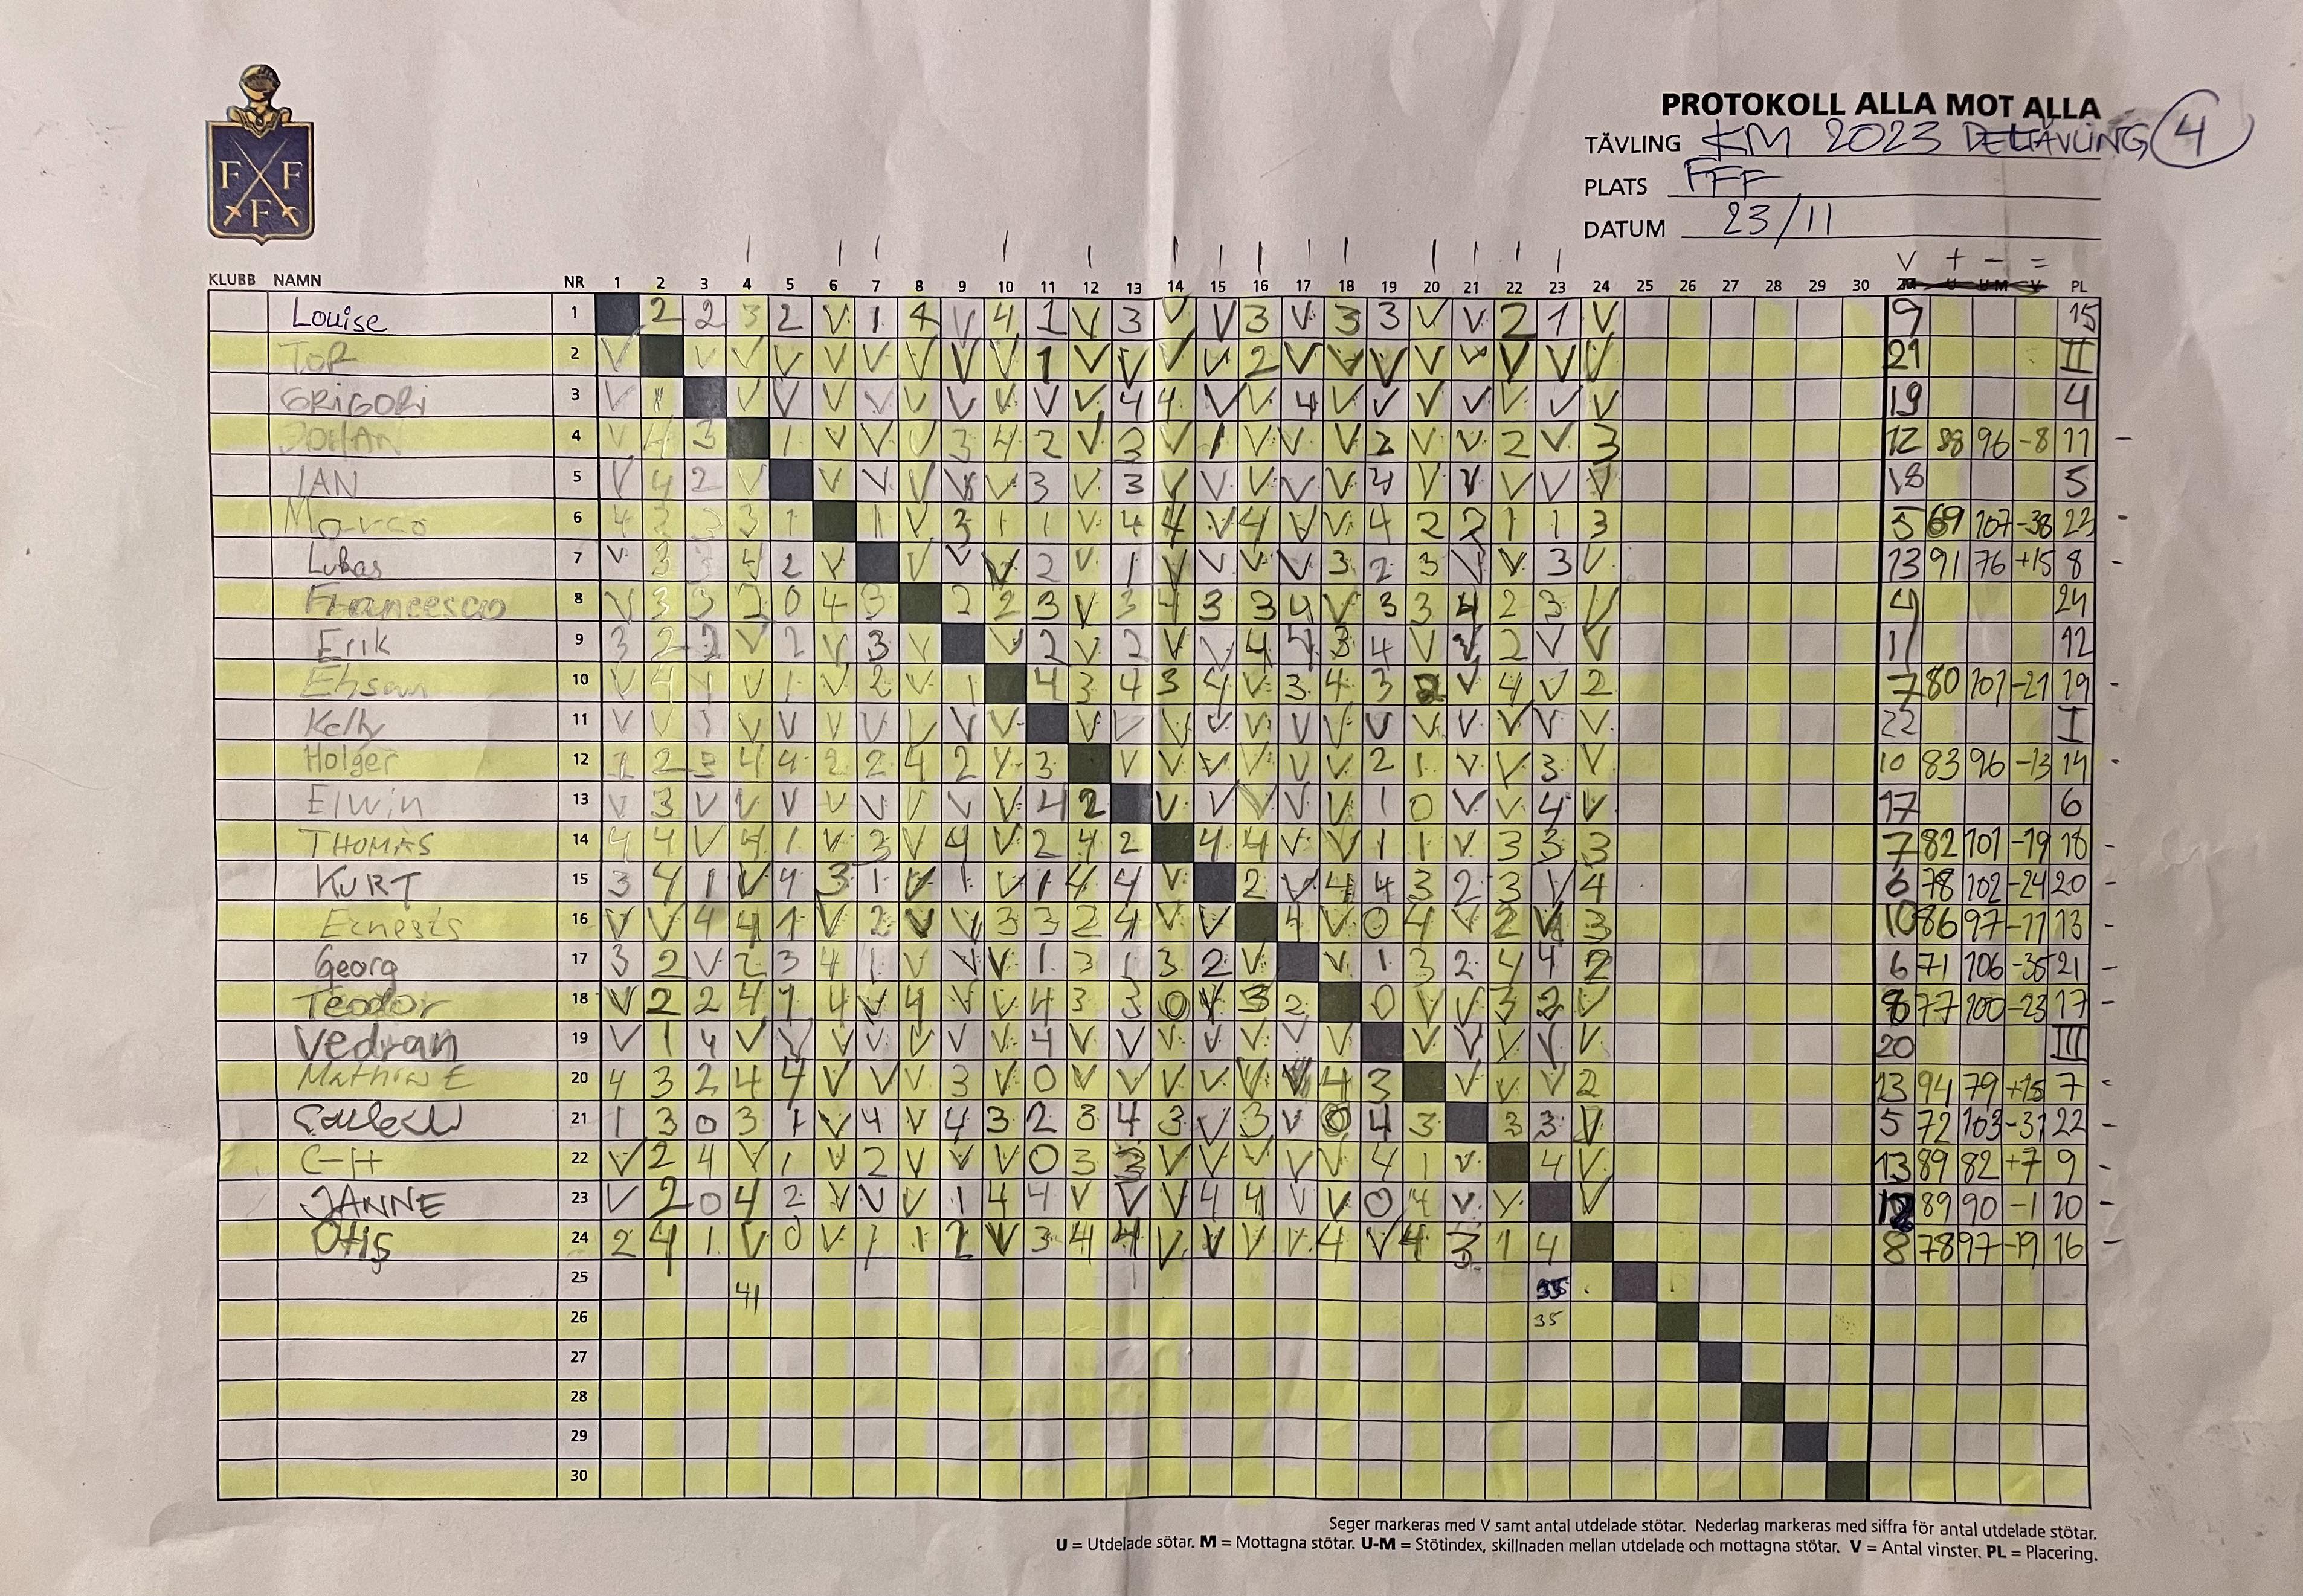 PROTOKOLL ALLA MOT ALLA
TÄVLING KM 2023 DELTÄVLING 4
PLATS FFF
DATUM 23/11
F F
F
V + - =
KLUBB NAMN NR 1 2 3 4 5 6 7 8 9 10 11 12 13 14 15 16 17 18 19 20 21 22 23 24 25 26 27 28 29 30 PL
Louise 1 2 2 3 2 V 1 4 V 4 1 V 3 V V 3 V 3 3 V V 2 1 V 9 15
TOR 2 V V V V V V V V V 1 V V V V 2 V V V V V V V V 21 II
GRIGORI 3 V V V V V V V V V V 4 4 V V 4 V V V V V V V 19 4
JOHAN 4 V 4 3 1 V V V 3 4 2 V 3 V 1 V V V 2 V V 2 V 3 12 88 96 -8 11
IAN 5 V 4 2 V V V V V V 3 V 3 V V V V V 4 V V V V V 18 5
Marco 6 4 3 1 1 V 3 1 1 V 4 4 V 4 V V 4 2 2 1 1 3 5 69 107 -38 23
Lukas 7 V 3 3 4 2 V V V V 2 V 1 V V V V 3 2 3 V V 3 V 13 91 76 +15 8
Francesco 8 V 3 3 2 0 4 3 2 2 3 V 3 4 3 3 4 V 3 3 4 2 3 V 4 24
Erik 9 3 2 2 V 2 V 3 V V 2 V 2 V V 4 4 3 4 V V 2 V V 11 12
Ehsan 10 V 4 1 V 1 V 2 V 1 4 3 4 3 4 V 3 4 3 2 V 4 V 2 7 80 101 -21 19
Kelly 11 V V 3 V V V V V V V V V V V V V V V V V V V V 22 I
Holger 12 2 4 4 2 2 4 2 V 3 V V V V V V 2 1 V V 3 V 10 83 96 -13 14
Elwin 13 V 3 V V V V V V V V 4 2 V V V V V 1 0 V V 4 V 17 6
THOMAS 14 4 4 V 4 1 V 3 V 4 V 2 4 2 4 4 V V 1 1 V 3 3 3 7 82 101 -19 18
KURT 15 3 4 1 V 4 3 1 V 1 V 1 4 4 V 2 V 4 4 3 2 3 V 4 6 78 102 -24 20
Ernests 16 V V 4 4 1 V 2 V V 3 3 2 4 V V 4 V 0 4 V 2 V 3 10 86 97 -11 13
Georg 17 3 2 V 2 3 4 1 V V V 1 3 1 3 2 V V 1 3 2 4 4 2 6 71 106 -35 21
Teodor 18 V 2 2 4 1 4 V 4 V V 4 3 3 0 V 3 2 0 V V 3 2 V 8 77 100 -23 17
Vedran 19 V 1 4 V V V V V V V 4 V V V V V V V V V V V V 20 III
Mathias E 20 4 3 2 4 4 V V V 3 V 0 V V V V V V 4 3 V V V 2 13 94 79 +15 7
21 1 3 0 3 1 V 4 V 4 3 2 3 4 3 V 3 V 0 4 3 3 3 V 5 72 103 -31 22
C-H 22 V 2 4 V 1 V 2 V V V 0 3 3 V V V V V 4 1 V 4 V 13 89 82 +7 9
JANNE 23 V 2 0 4 2 V V V 1 4 4 V V V 4 4 V V 0 4 V V V 12 89 90 -1 10
Otis 24 2 4 1 V 0 V 1 1 2 V 3 4 4 V V V V 4 V 4 3 1 4 8 78 97 -19 16
25 41
26 35
27
28
29
30
Seger markeras med V samt antal utdelade stötar. Nederlag markeras med siffra för antal utdelade stötar.
U = Utdelade sötar. M = Mottagna stötar. U-M = Stötindex, skillnaden mellan utdelade och mottagna stötar. V = Antal vinster. PL = Placering.